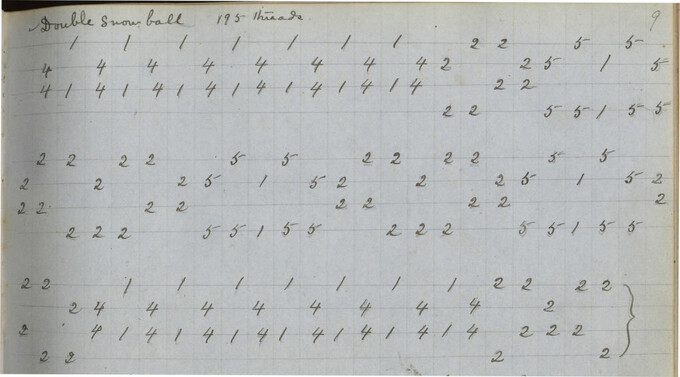 Double Snow ball 195 threads 9
1 1 1 1 1 1 1 2 2 5 5
4 4 4 4 4 4 4 4 2 2 5 1 5
4 1 4 1 4 1 4 1 4 1 4 1 4 1 4 2 2
2 2 5 5 1 5 5
2 2 2 2 5 5 2 2 2 2 5 5
2 2 2 5 1 5 2 2 2 5 1 5 2
2 2 2 2 2 2 2 2 2
2 2 2 5 5 1 5 5 2 2 2 5 5 1 5 5
2 2 1 1 1 1 1 1 1 2 2 2 2
2 4 4 4 4 4 4 4 4 2
2 4 1 4 1 4 1 4 1 4 1 4 1 4 1 4 2 2 2
2 2 2 2